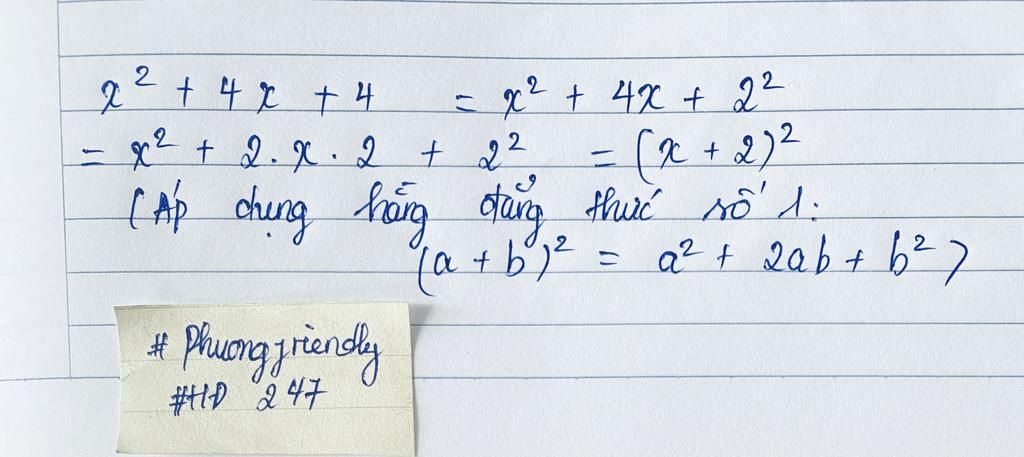 x² + 4x + 4 = x² + 4x + 2²
= x² + 2.x.2 + 2² = (x + 2)²
(Áp dụng hằng đẳng thức số 1:
(a + b)² = a² + 2ab + b²)
# Phuongfriendly
#HD 247